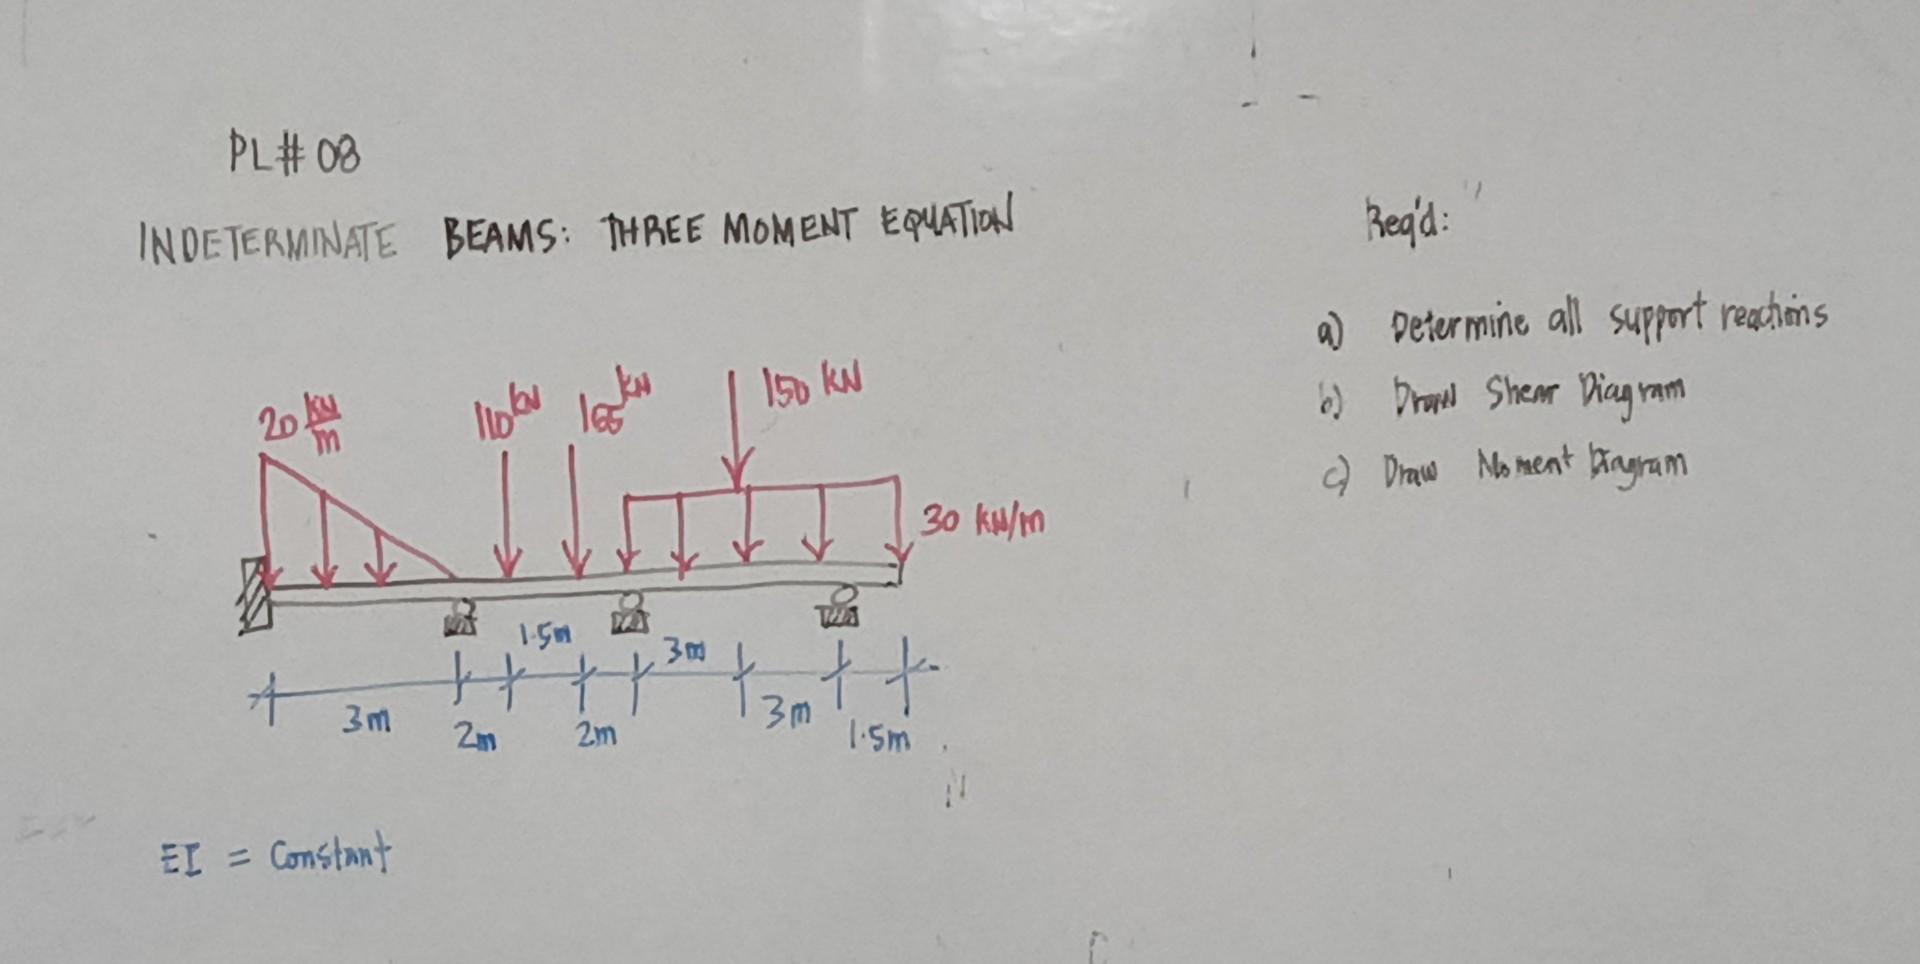 PL# 08
INDETERMINATE BEAMS: THREE MOMENT EQUATION
Req'd:
a) Determine all support reactions
b) Draw Shear Diagram
c) Draw Moment Diagram
20 kN/m
110 kN
kN
150 kN
30 kN/m
1.5m
3m
3m
2m
2m
3m
1.5m
EI = Constant